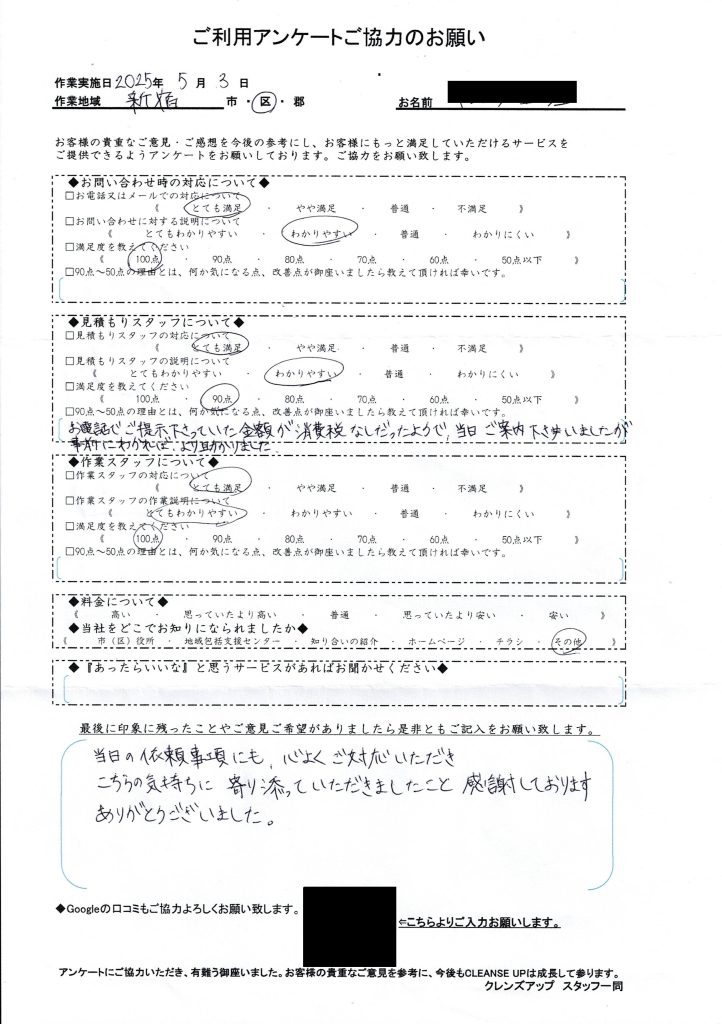 ご利用アンケートご協力のお願い
作業実施日2025年 5月 3日
作業地域 新宿 市・区・郡 お名前
お客様の貴重なご意見・ご感想を今後の参考にし、お客様にもっと満足していただけるサービスを
ご提供できるようアンケートをお願いしております。ご協力をお願い致します。
◆お問い合わせ時の対応について◆
□お電話又はメールでの対応について
《 とても満足 ・ やや満足 ・ 普通 ・ 不満足 》
□お問い合わせに対する説明について
《 とてもわかりやすい ・ わかりやすい ・ 普通 ・ わかりにくい 》
□満足度を教えてください
《 100点 ・ 90点 ・ 80点 ・ 70点 ・ 60点 ・ 50点以下 》
□90点～50点の理由とは、何か気になる点、改善点が御座いましたら教えて頂ければ幸いです。
◆見積もりスタッフについて◆
□見積もりスタッフの対応について
《 とても満足 ・ やや満足 ・ 普通 ・ 不満足 》
□見積もりスタッフの説明について
《 とてもわかりやすい ・ わかりやすい ・ 普通 ・ わかりにくい 》
□満足度を教えてください
《 100点 ・ 90点 ・ 80点 ・ 70点 ・ 60点 ・ 50点以下 》
□90点～50点の理由とは、何か気になる点、改善点が御座いましたら教えて頂ければ幸いです。
お電話でご提示下さっていた金額が消費税なしだったようで、当日ご案内下さいましたが
事前にわかれば、より助かりました。
◆作業スタッフについて◆
□作業スタッフの対応について
《 とても満足 ・ やや満足 ・ 普通 ・ 不満足 》
□作業スタッフの作業説明について
《 とてもわかりやすい ・ わかりやすい ・ 普通 ・ わかりにくい 》
□満足度を教えてください
《 100点 ・ 90点 ・ 80点 ・ 70点 ・ 60点 ・ 50点以下 》
□90点～50点の理由とは、何か気になる点、改善点が御座いましたら教えて頂ければ幸いです。
◆料金について◆
《 高い ・ 思っていたより高い ・ 普通 ・ 思っていたより安い ・ 安い 》
◆当社をどこでお知りになられましたか◆
《 市（区）役所 ・ 地域包括支援センター ・ 知り合いの紹介 ・ ホームページ ・ チラシ ・ その他 》
◆『あったらいいな』と思うサービスがあればお聞かせください◆
最後に印象に残ったことやご意見ご希望がありましたら是非ともご記入をお願い致します。
当日の依頼事項にも、心よくご対応いただき
こちらの気持ちに寄り添っていただきましたこと 感謝しております
ありがとうございました。
◆Googleの口コミもご協力よろしくお願い致します。
⇐こちらよりご入力お願いします。
アンケートにご協力いただき、有難う御座いました。お客様の貴重なご意見を参考に、今後もCLEANSE UPは成長して参ります。
クレンズアップ スタッフ一同